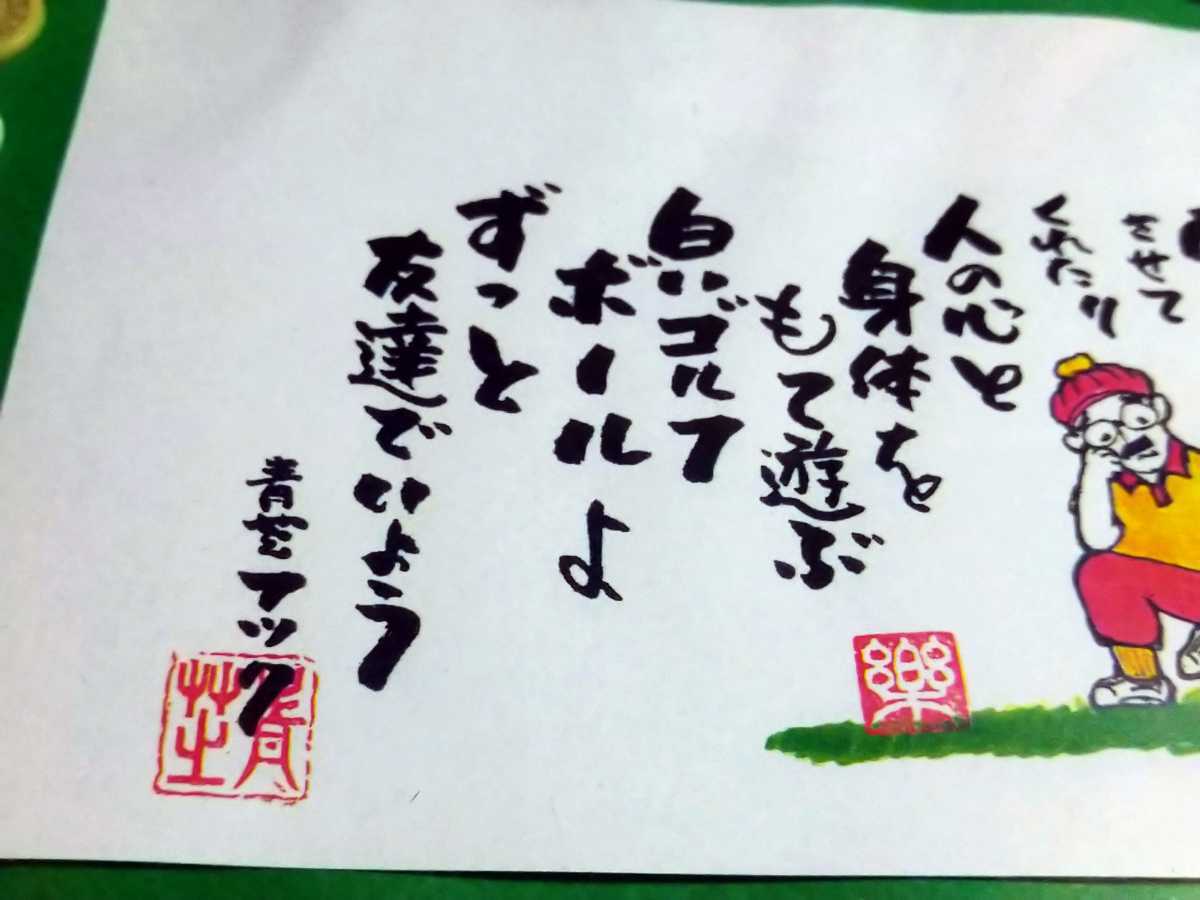 させて
くれたり
人の心と
身体を
もて遊ぶ
白いゴルフ
ボールよ
ずっと
友達でいよう
青芝フック
楽
青芝